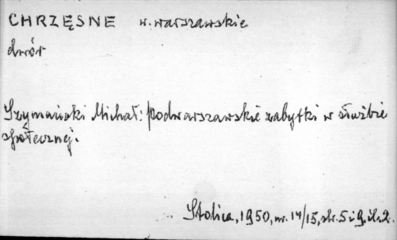 CHRZĘSNE w. warszawskie
dwór
Szymański Michał: Podwarszawskie zabytki w służbie
społecznej.
Stolica, 1950, nr. 14/15, str. 5 i 9, il. 2.